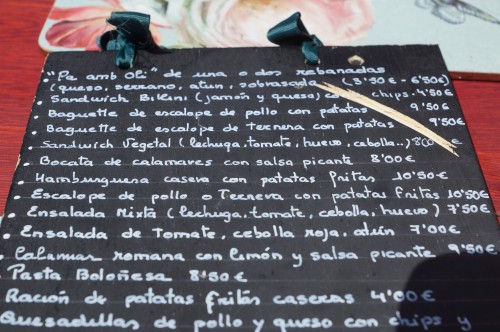 "Pa amb oli" de una o dos rebanadas
(queso, serrano, atun, sobrasada) (3'50€ - 6'50€)
• Sandwich Bikini (jamón y queso) con chips. 4'50€
• Baguette de escalope de pollo con patatas 9'50€
• Baguette de escalope de ternera con patatas 9'50€
• Sandwich Vegetal (lechuga, tomate, huevo, cebolla..) 8'00€
• Bocata de calamares con salsa picante 8'00€
• Hamburguesa casera con patatas fritas 10'50€
• Escalope de pollo o Ternera con patatas fritas 10'50€
• Ensalada Mixta (lechuga, tomate, cebolla, huevo) 7'50€
• Ensalada de Tomate, cebolla roja, atún 7'00€
• Calamar romana con limón y salsa picante 9'50€
• Pasta Boloñesa 8'50€
Ración de patatas fritas caseras 4'00€
Quesadillas de pollo y queso con chips y